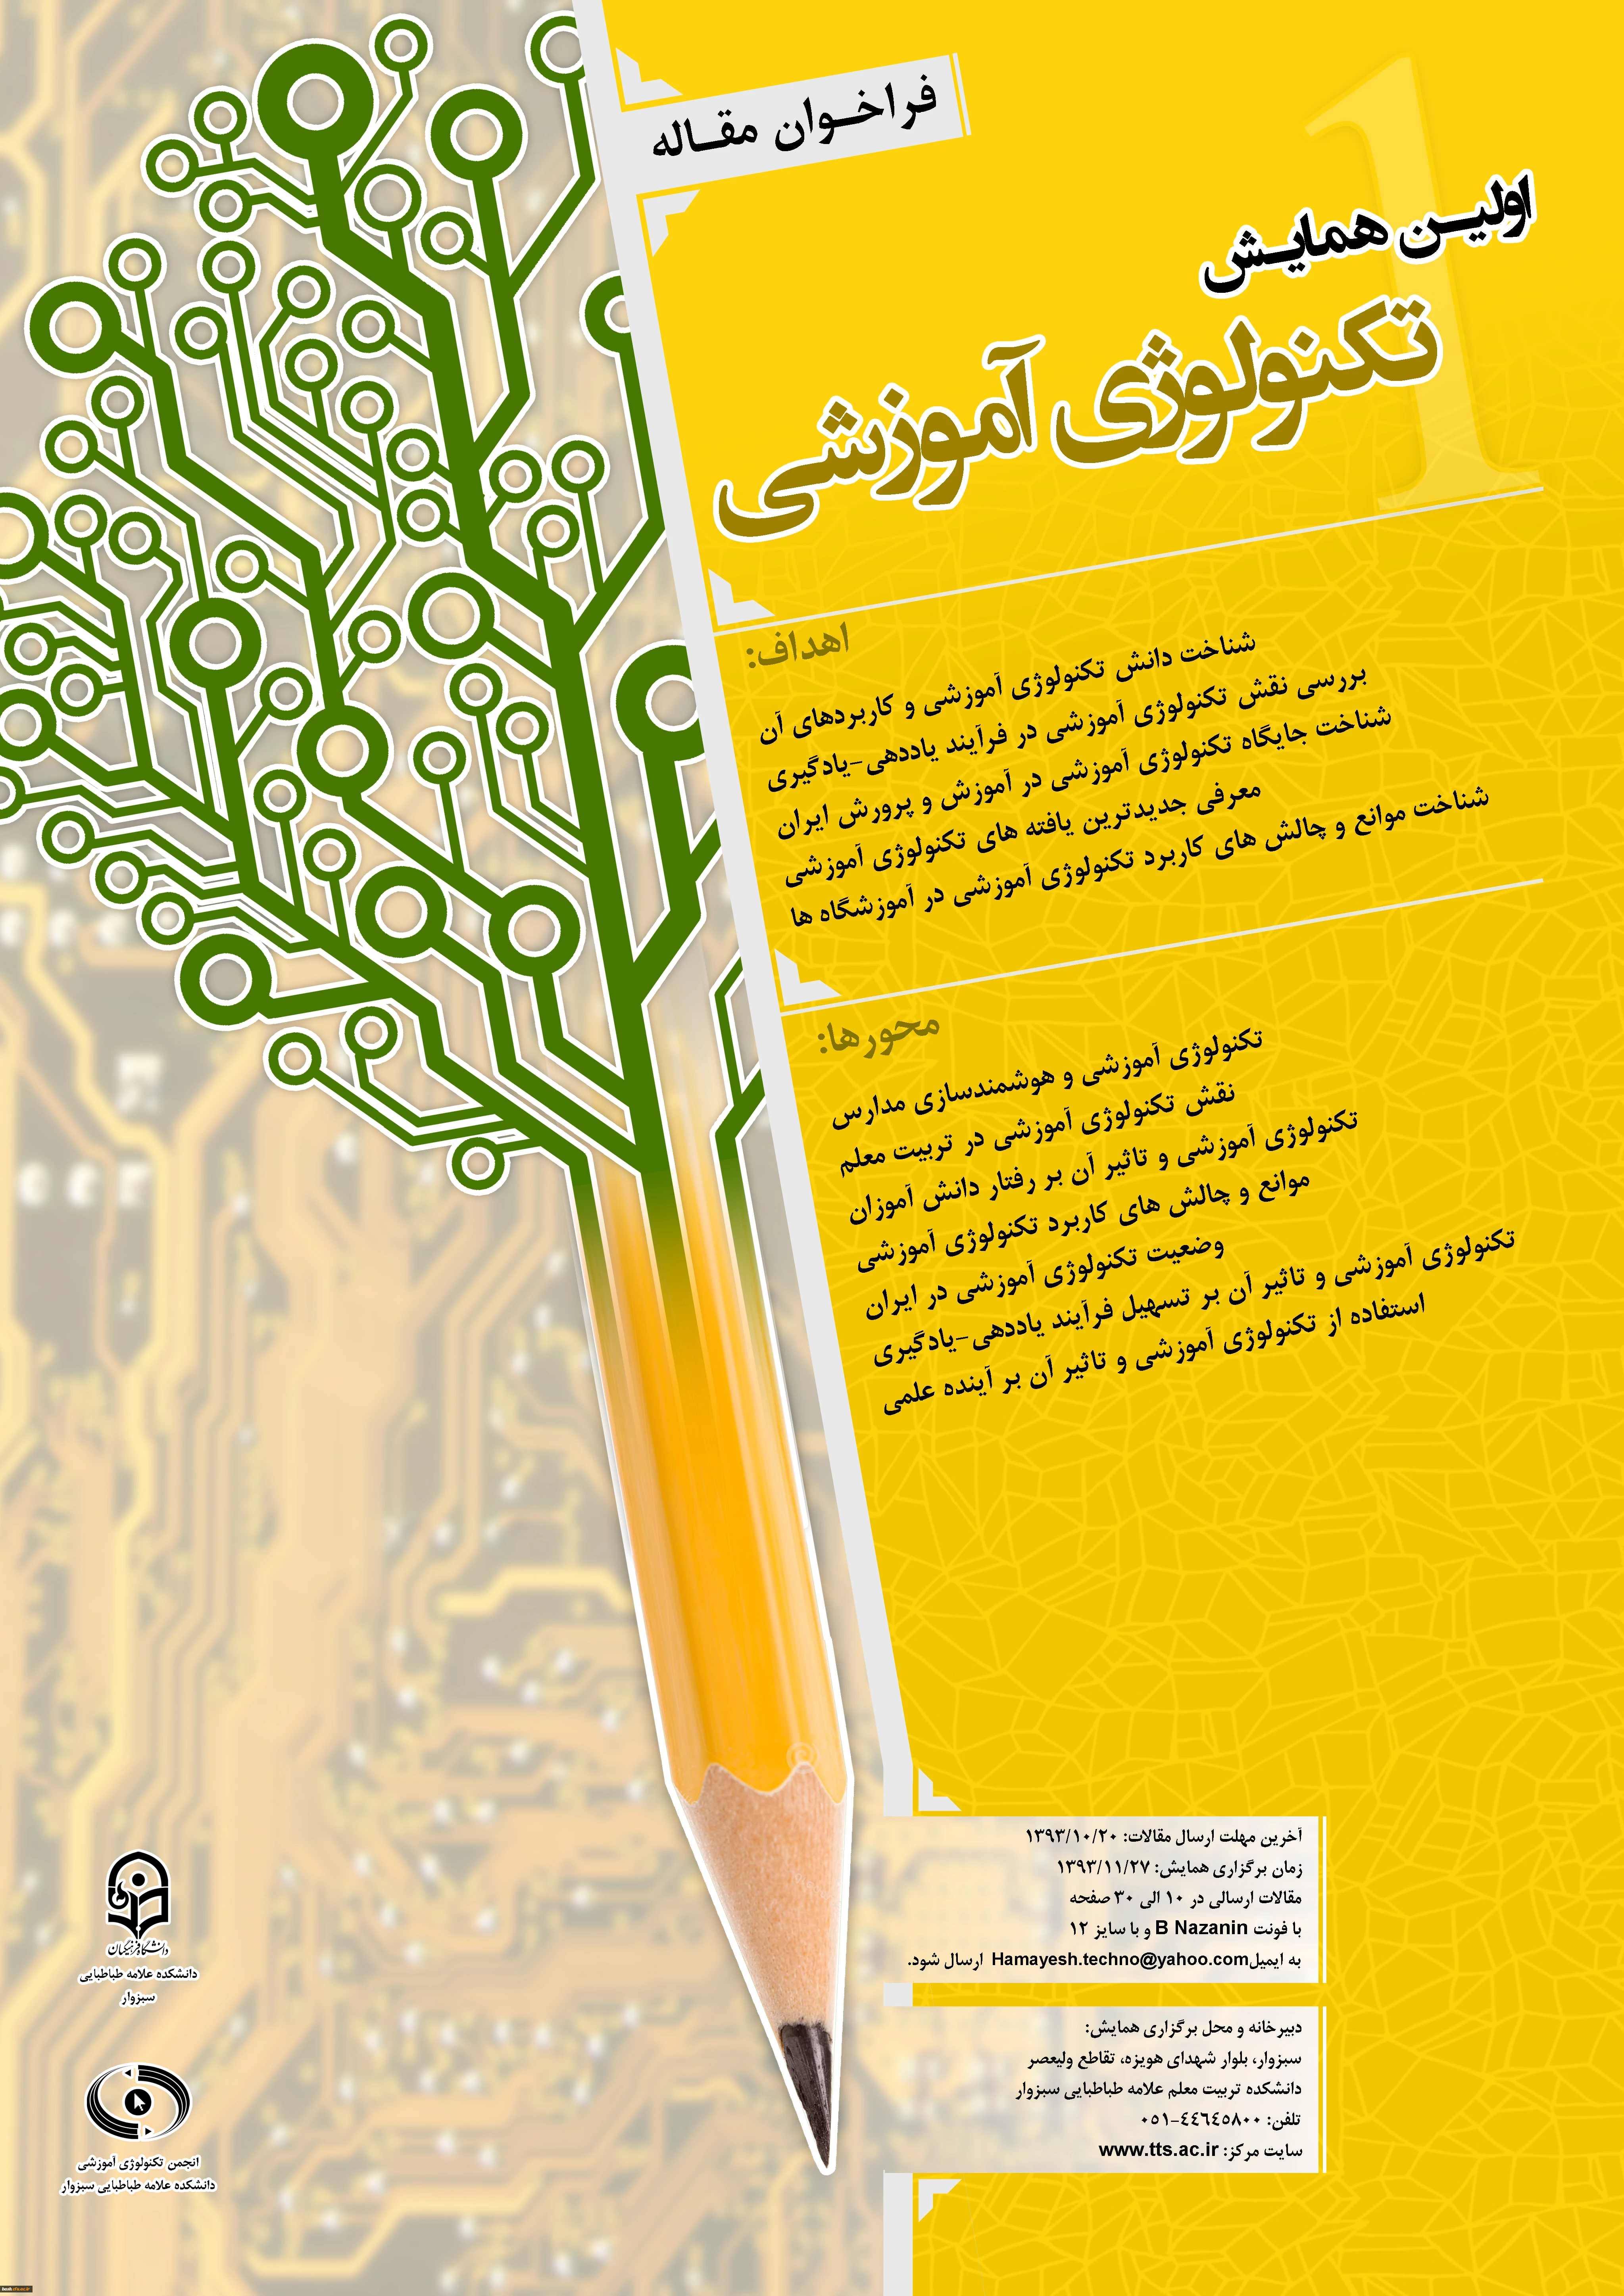 فراخوان مقاله
1
اولین همایش
تکنولوژی آموزشی
اهداف:
شناخت دانش تکنولوژی آموزشی و کاربردهای آن
بررسی نقش تکنولوژی آموزشی در فرآیند یاددهی-یادگیری
شناخت جایگاه تکنولوژی آموزشی در آموزش و پرورش ایران
معرفی جدیدترین یافته های تکنولوژی آموزشی
شناخت موانع و چالش های کاربرد تکنولوژی آموزشی در آموزشگاه ها
محورها:
تکنولوژی آموزشی و هوشمندسازی مدارس
نقش تکنولوژی آموزشی در تربیت معلم
تکنولوژی آموزشی و تاثیر آن بر رفتار دانش آموزان
موانع و چالش های کاربرد تکنولوژی آموزشی
وضعیت تکنولوژی آموزشی در ایران
تکنولوژی آموزشی و تاثیر آن بر تسهیل فرآیند یاددهی-یادگیری
استفاده از تکنولوژی آموزشی و تاثیر آن بر آینده علمی
آخرین مهلت ارسال مقالات: ۱۳۹۳/۱۰/۲۰
زمان برگزاری همایش: ۱۳۹۳/۱۱/۲۷
مقالات ارسالی در ۱۰ الی ۳۰ صفحه
با فونت B Nazanin و با سایز ۱۲
به ایمیل Hamayesh.techno@yahoo.com ارسال شود.
دبیرخانه و محل برگزاری همایش:
سبزوار، بلوار شهدای هویزه، تقاطع ولیعصر
دانشکده تربیت معلم علامه طباطبایی سبزوار
تلفن: ۰۵۱-۴۴۶۴۵۸۰۰
سایت مرکز: www.tts.ac.ir
دانشگاه فرهنگیان
دانشکده علامه طباطبایی
سبزوار
انجمن تکنولوژی آموزشی
دانشکده علامه طباطبایی سبزوار